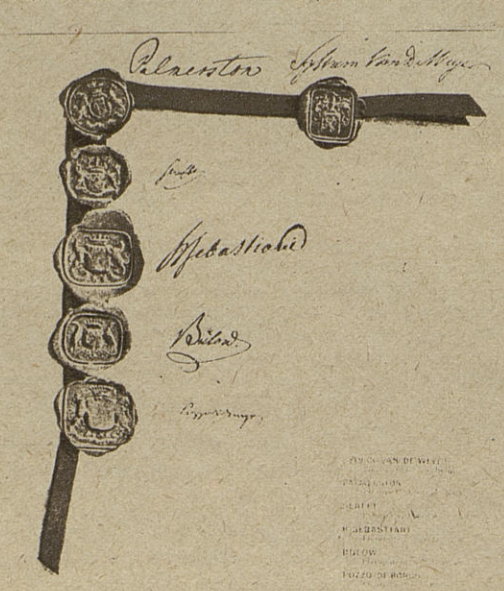 Palmerston Sylvain Van de Weyer
Senfft
H Sebastiani
Bülow.
Pozzo di Borgo.
SYLVAIN VAN DE WEYER
PALMERSTON
SENFFT
H. SEBASTIANI
BULOW
POZZO DI BORGO